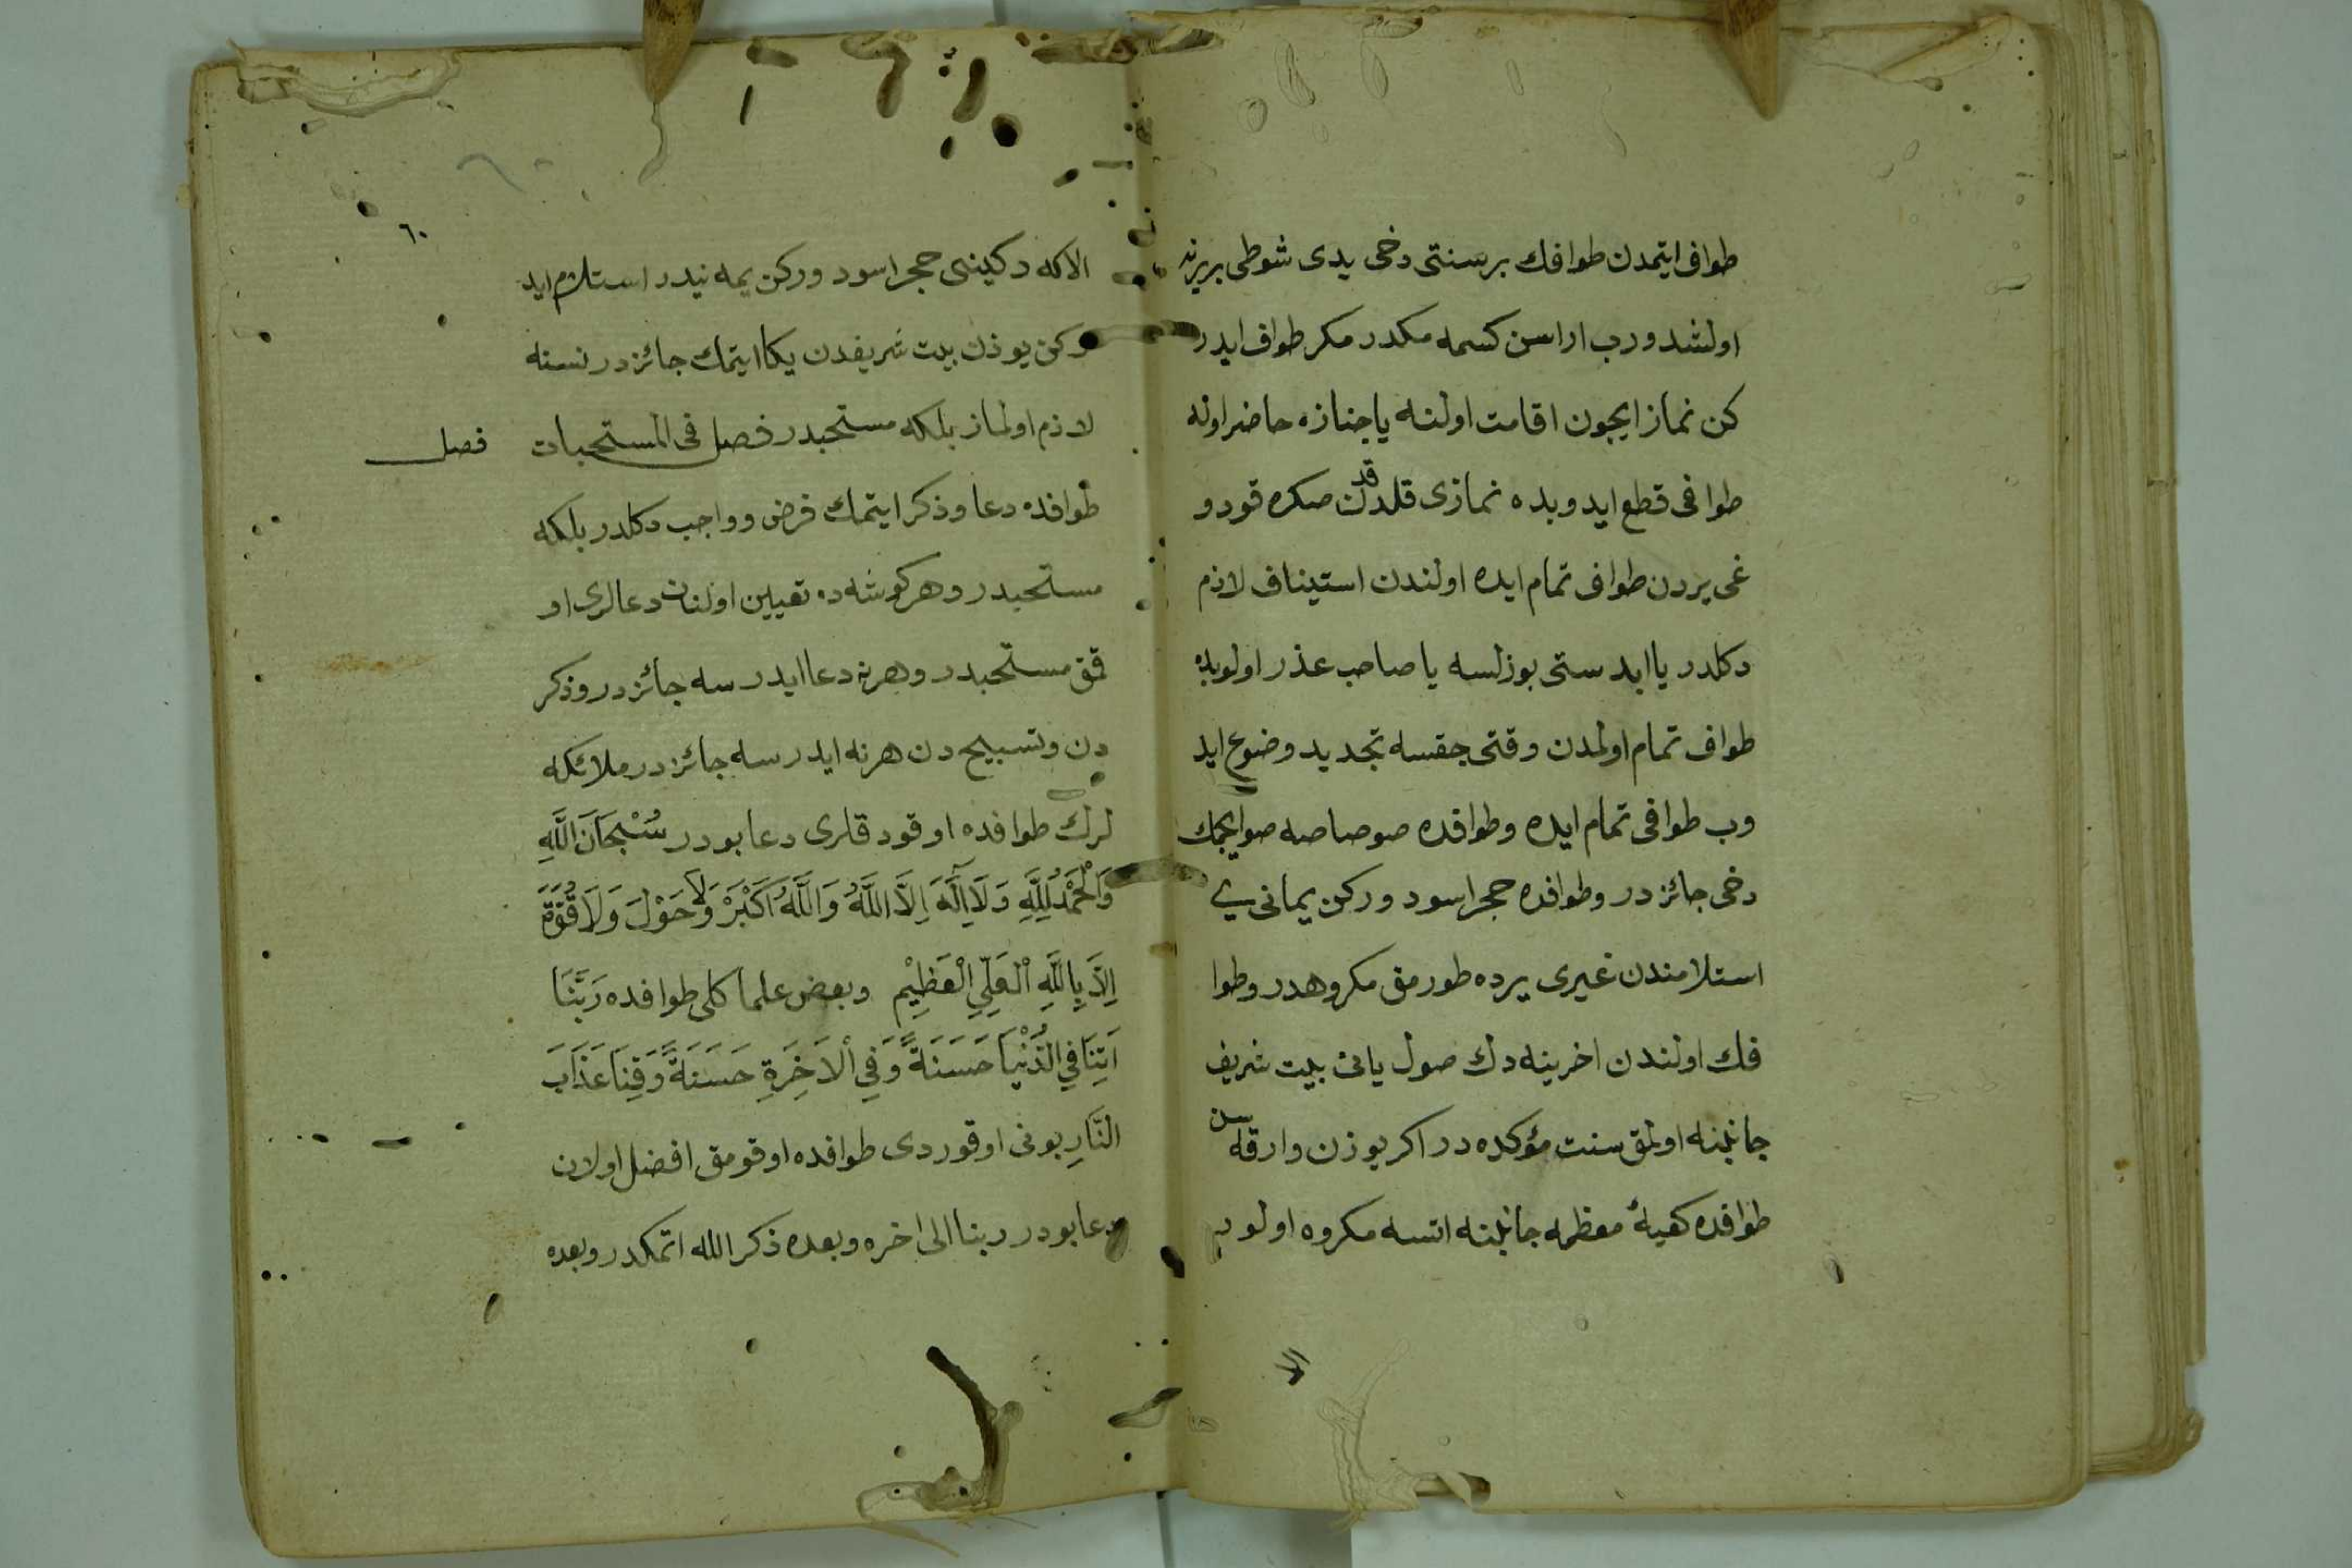 طواف ايتمدن طوافك بر سنتى دخى يدى شوطى بربرينه
اولشدورب اراسن كسمه مكدر مكر طواف ايدر
كن نماز ايچون اقامت اولنه يا جنازه حاضر اوله
طوافى قطع ايدوبده نمازى قلدقدن صكره قودو
غى يردن طواف تمام ايده اولندن استيناف لازم
دكلدر يا ابدستى بوزلسه يا صاحب عذر اولوبده
طواف تمام اولمدن وقتى چقسه تجديد وضوء ايد
وب طوافى تمام ايده وطوافده صوصاصه صو ايچمك
دخى جائزدر وطوافده حجر اسود وركن يمانى يى
استلامندن غيرى يرده طورمق مكروهدر وطوا
فك اولندن اخرينه دك صول يانى بيت شريف
جانبنه اولمق سنت مؤكده در اكر يوزن وارقه سن
طوافده كعبۀ معظمه جانبنه اتسه مكروه اولور
٦٠
الاكه دكينى حجر اسود وركن يمه نيدر استلام ايد
ركن يوزن بيت شريفدن يكا ايتمك جائزدر نسنه
لازم اولماز بلكه مستحبدر فصل فى المستحبات
فصل
طوافده دعا وذكر ايتمك فرض وواجب دكلدر بلكه
مستحبدر وهر كوشه ده تعيين اولنان دعالرى او
قمق مستحبدر وهرنه دعا ايدرسه جائزدر وذكر
دن وتسبيح دن هرنه ايدرسه جائزدر ملائكه
لرك طوافده اوقودقلرى دعا بودر سُبْحَانَ اللَّهِ
وَالْحَمْدُ لِلَّهِ وَلَا اِلَهَ اِلَّا اللَّهُ وَاللَّهُ اَكْبَرْ وَلَا حَوْلَ وَلَا قُوَّةَ
اِلَّا بِاللَّهِ الْعَلِيِّ الْعَظِيْمِ وبعض علما كلى طوافده رَبَّنَا
اَتِنَا فِي الدُّنْيَا حَسَنَةً وَفِي الْاَخِرَةِ حَسَنَةً وَقِنَا عَذَابَ
النَّارِ بونى اوقوردى طوافده اوقومق افضل اولان
دعا بودر ربنا الى اخره وبعده ذكر الله اتمكدر وبعده